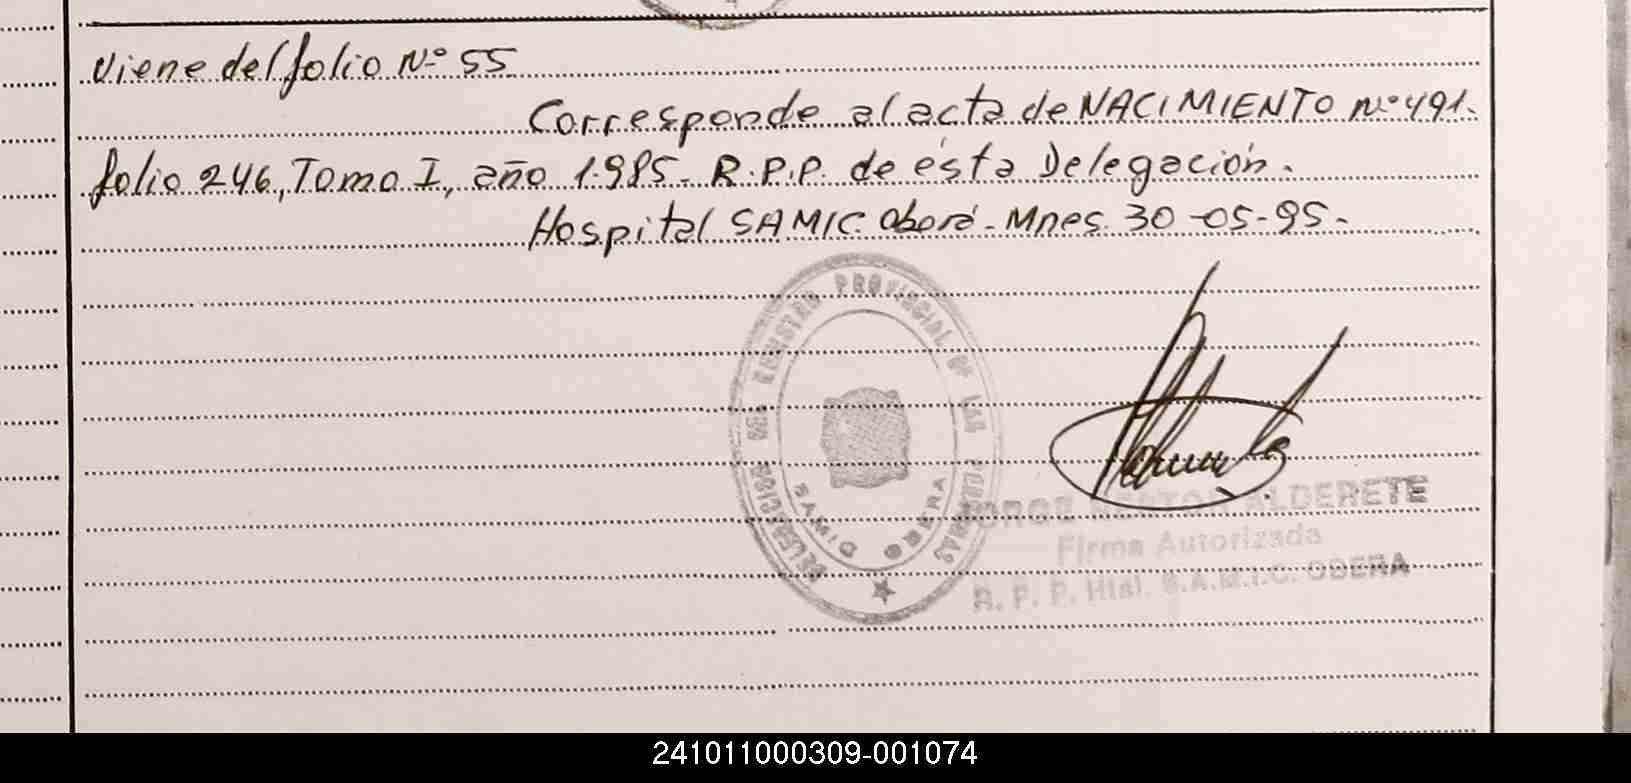 Viene del folio Nº 55
Corresponde al acta de NACIMIENTO Nº 491.
folio 246, Tomo I, año 1.985_ R.P.P. de ésta Delegación.
Hospital SAMIC. Oberá - Mnes. 30-05-95-
REGISTRO PROVINCIAL DE LAS PERSONAS
SAMIC OBERA
JORGE NESTOR ALDERETE
Firma Autorizada
R. P. P. Htal. S.A.M.I.C. OBERA
241011000309-001074